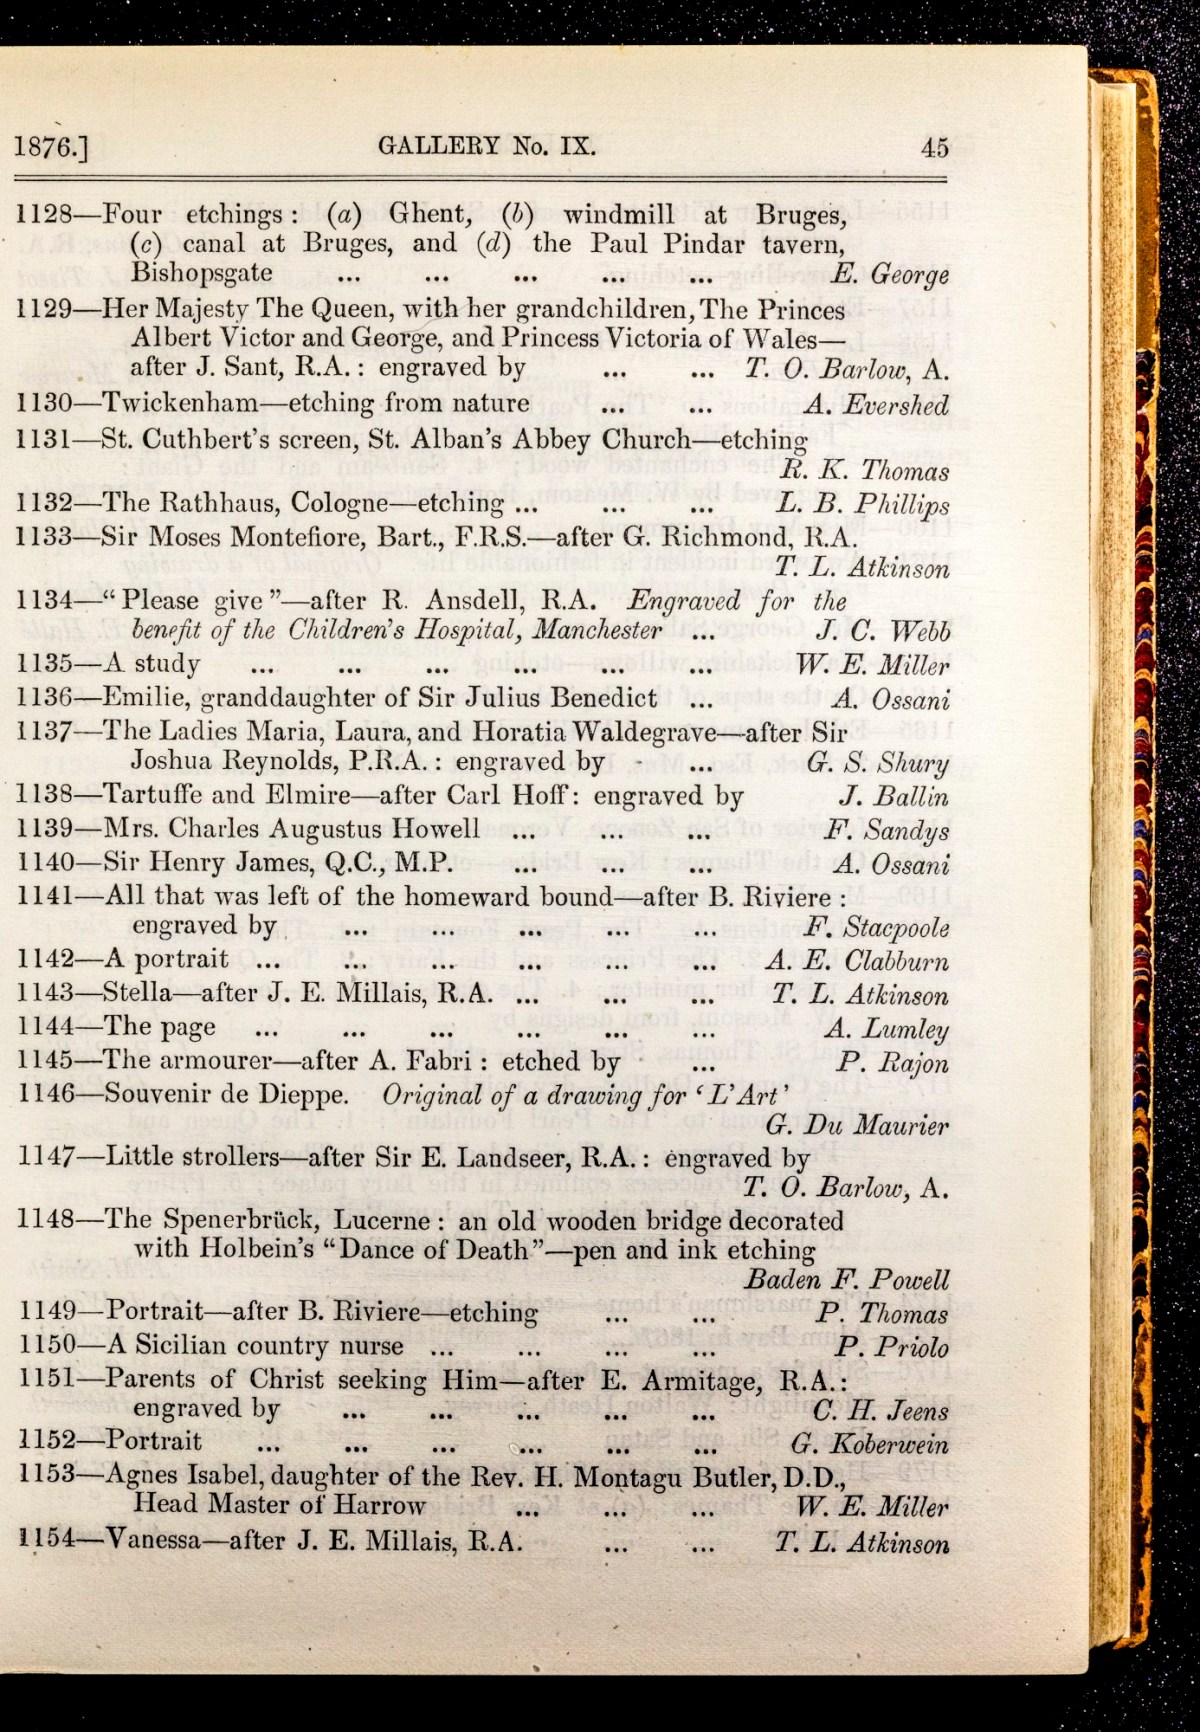 1876.] GALLERY No. IX. 45
1128—Four etchings: (a) Ghent, (b) windmill at Bruges,
(c) canal at Bruges, and (d) the Paul Pindar tavern,
Bishopsgate ... ... ... ... ... E. George
1129—Her Majesty The Queen, with her grandchildren, The Princes
Albert Victor and George, and Princess Victoria of Wales—
after J. Sant, R.A.: engraved by ... ... T. O. Barlow, A.
1130—Twickenham—etching from nature ... ... A. Evershed
1131—St. Cuthbert's screen, St. Alban's Abbey Church—etching
R. K. Thomas
1132—The Rathhaus, Cologne—etching ... ... ... L. B. Phillips
1133—Sir Moses Montefiore, Bart., F.R.S.—after G. Richmond, R.A.
T. L. Atkinson
1134—“Please give”—after R. Ansdell, R.A. Engraved for the
benefit of the Children's Hospital, Manchester ... J. C. Webb
1135—A study ... ... ... ... ... ... W. E. Miller
1136—Emilie, granddaughter of Sir Julius Benedict ... A. Ossani
1137—The Ladies Maria, Laura, and Horatia Waldegrave—after Sir
Joshua Reynolds, P.R.A.: engraved by - ... G. S. Shury
1138—Tartuffe and Elmire—after Carl Hoff: engraved by J. Ballin
1139—Mrs. Charles Augustus Howell ... ... ... F. Sandys
1140—Sir Henry James, Q.C., M.P. ... ... ... A. Ossani
1141—All that was left of the homeward bound—after B. Riviere:
engraved by ... ... ... ... ... F. Stacpoole
1142—A portrait ... ... ... ... ... ... A. E. Clabburn
1143—Stella—after J. E. Millais, R.A. ... ... ... T. L. Atkinson
1144—The page ... ... ... ... ... ... A. Lumley
1145—The armourer—after A. Fabri: etched by ... P. Rajon
1146—Souvenir de Dieppe. Original of a drawing for ‘L'Art’
G. Du Maurier
1147—Little strollers—after Sir E. Landseer, R.A.: engraved by
T. O. Barlow, A.
1148—The Spenerbrück, Lucerne: an old wooden bridge decorated
with Holbein's “Dance of Death”—pen and ink etching
Baden F. Powell
1149—Portrait—after B. Riviere—etching ... ... P. Thomas
1150—A Sicilian country nurse ... ... ... ... P. Priolo
1151—Parents of Christ seeking Him—after E. Armitage, R.A.:
engraved by ... ... ... ... ... C. H. Jeens
1152—Portrait ... ... ... ... ... ... G. Koberwein
1153—Agnes Isabel, daughter of the Rev. H. Montagu Butler, D.D.,
Head Master of Harrow ... ... ... W. E. Miller
1154—Vanessa—after J. E. Millais, R.A. ... ... T. L. Atkinson